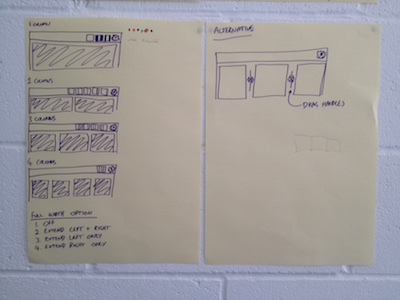 1 COLUMN
2 COLUMNS
3 COLUMNS
4 COLUMNS
FULL WIDTH OPTION
1 OFF
2 EXTEND LEFT + RIGHT
3 EXTEND LEFT ONLY
4 EXTEND RIGHT ONLY
ALTERNATIVE
DRAG HANDLES